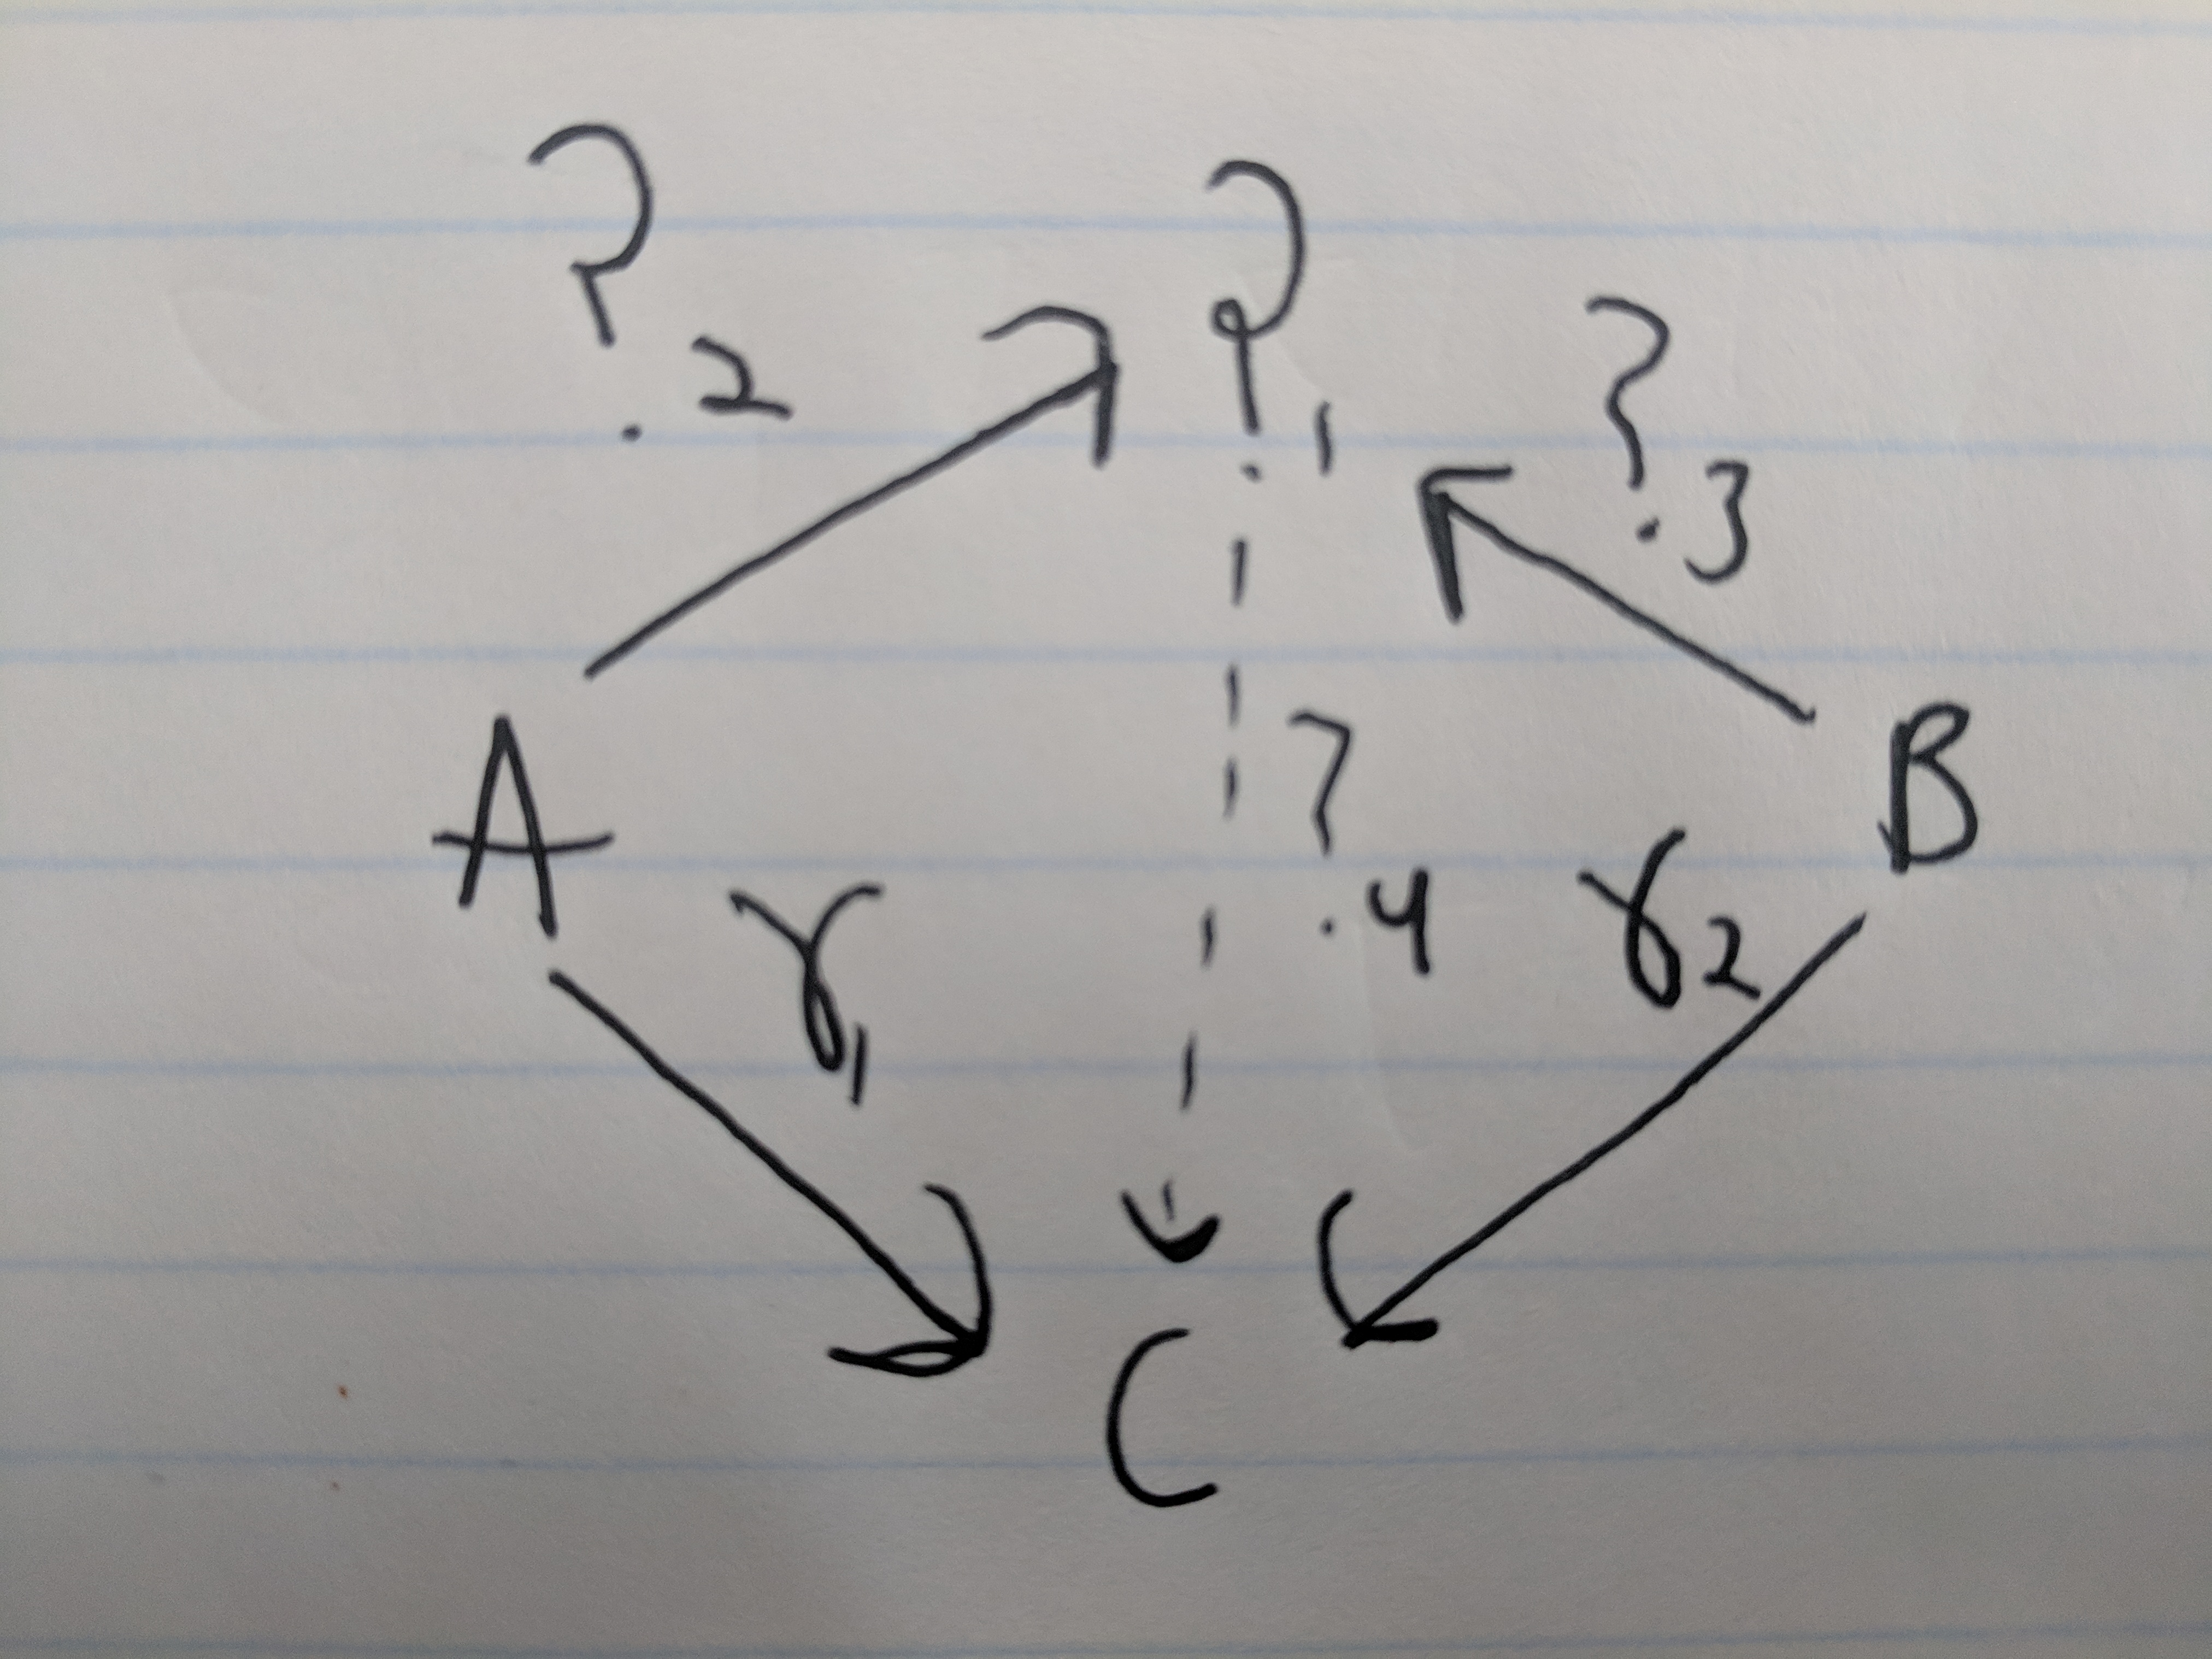 ?2
?1
?3
A
B
γ1
?4
γ2
C